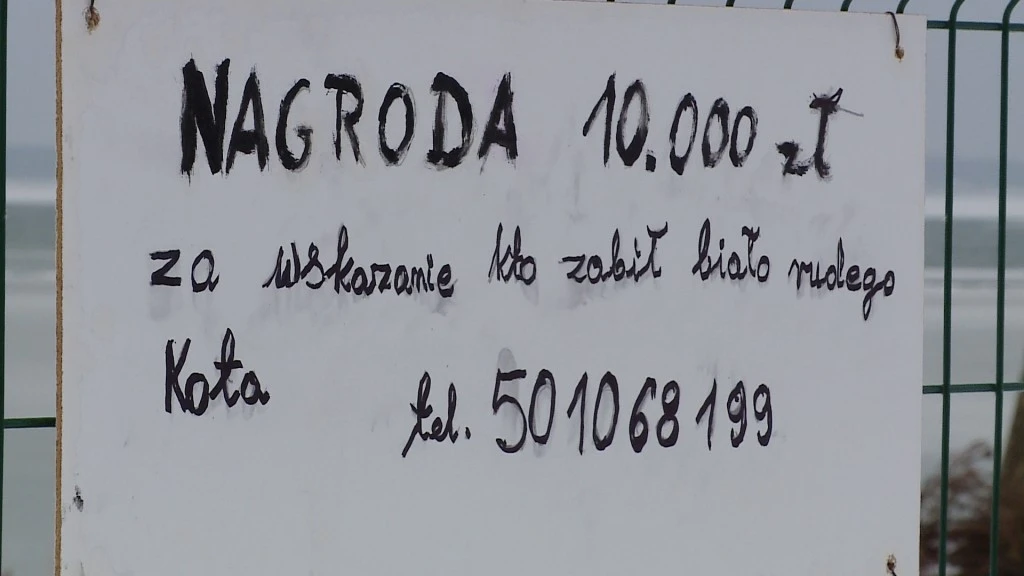 NAGRODA 10.000 zł
za wskazanie kto zabił biało rudego
Kota
tel. 501068199